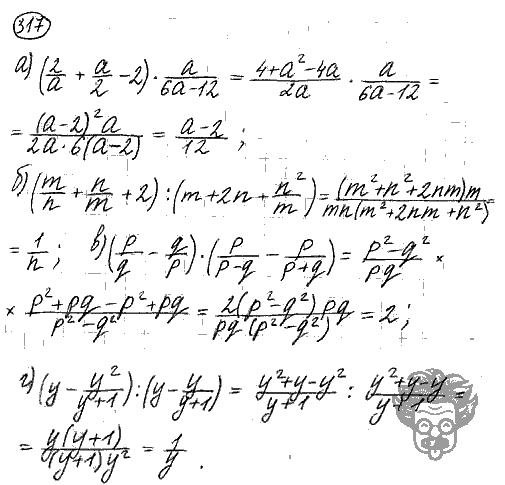 317
а) (2/a + a/2 - 2) · a/(6a-12) = (4+a²-4a)/(2a) · a/(6a-12) =
= ((a-2)² a)/(2a·6(a-2)) = (a-2)/12 ;
б) (m/n + n/m + 2) : (m + 2n + n²/m) = ((m²+n²+2nm)m)/(mn(m²+2nm+n²)) =
= 1/n ; в) (p/q - q/p) · (p/(p-q) - p/(p+q)) = (p²-q²)/(pq) ×
× (p²+pq-p²+pq)/(p²-q²) = (2(p²-q²)pq)/(pq(p²-q²)) = 2 ;
г) (y - y²/(y+1)) : (y - y/(y+1)) = (y²+y-y²)/(y+1) : (y²+y-y)/(y+1) =
= (y(y+1))/((y+1)y²) = 1/y .